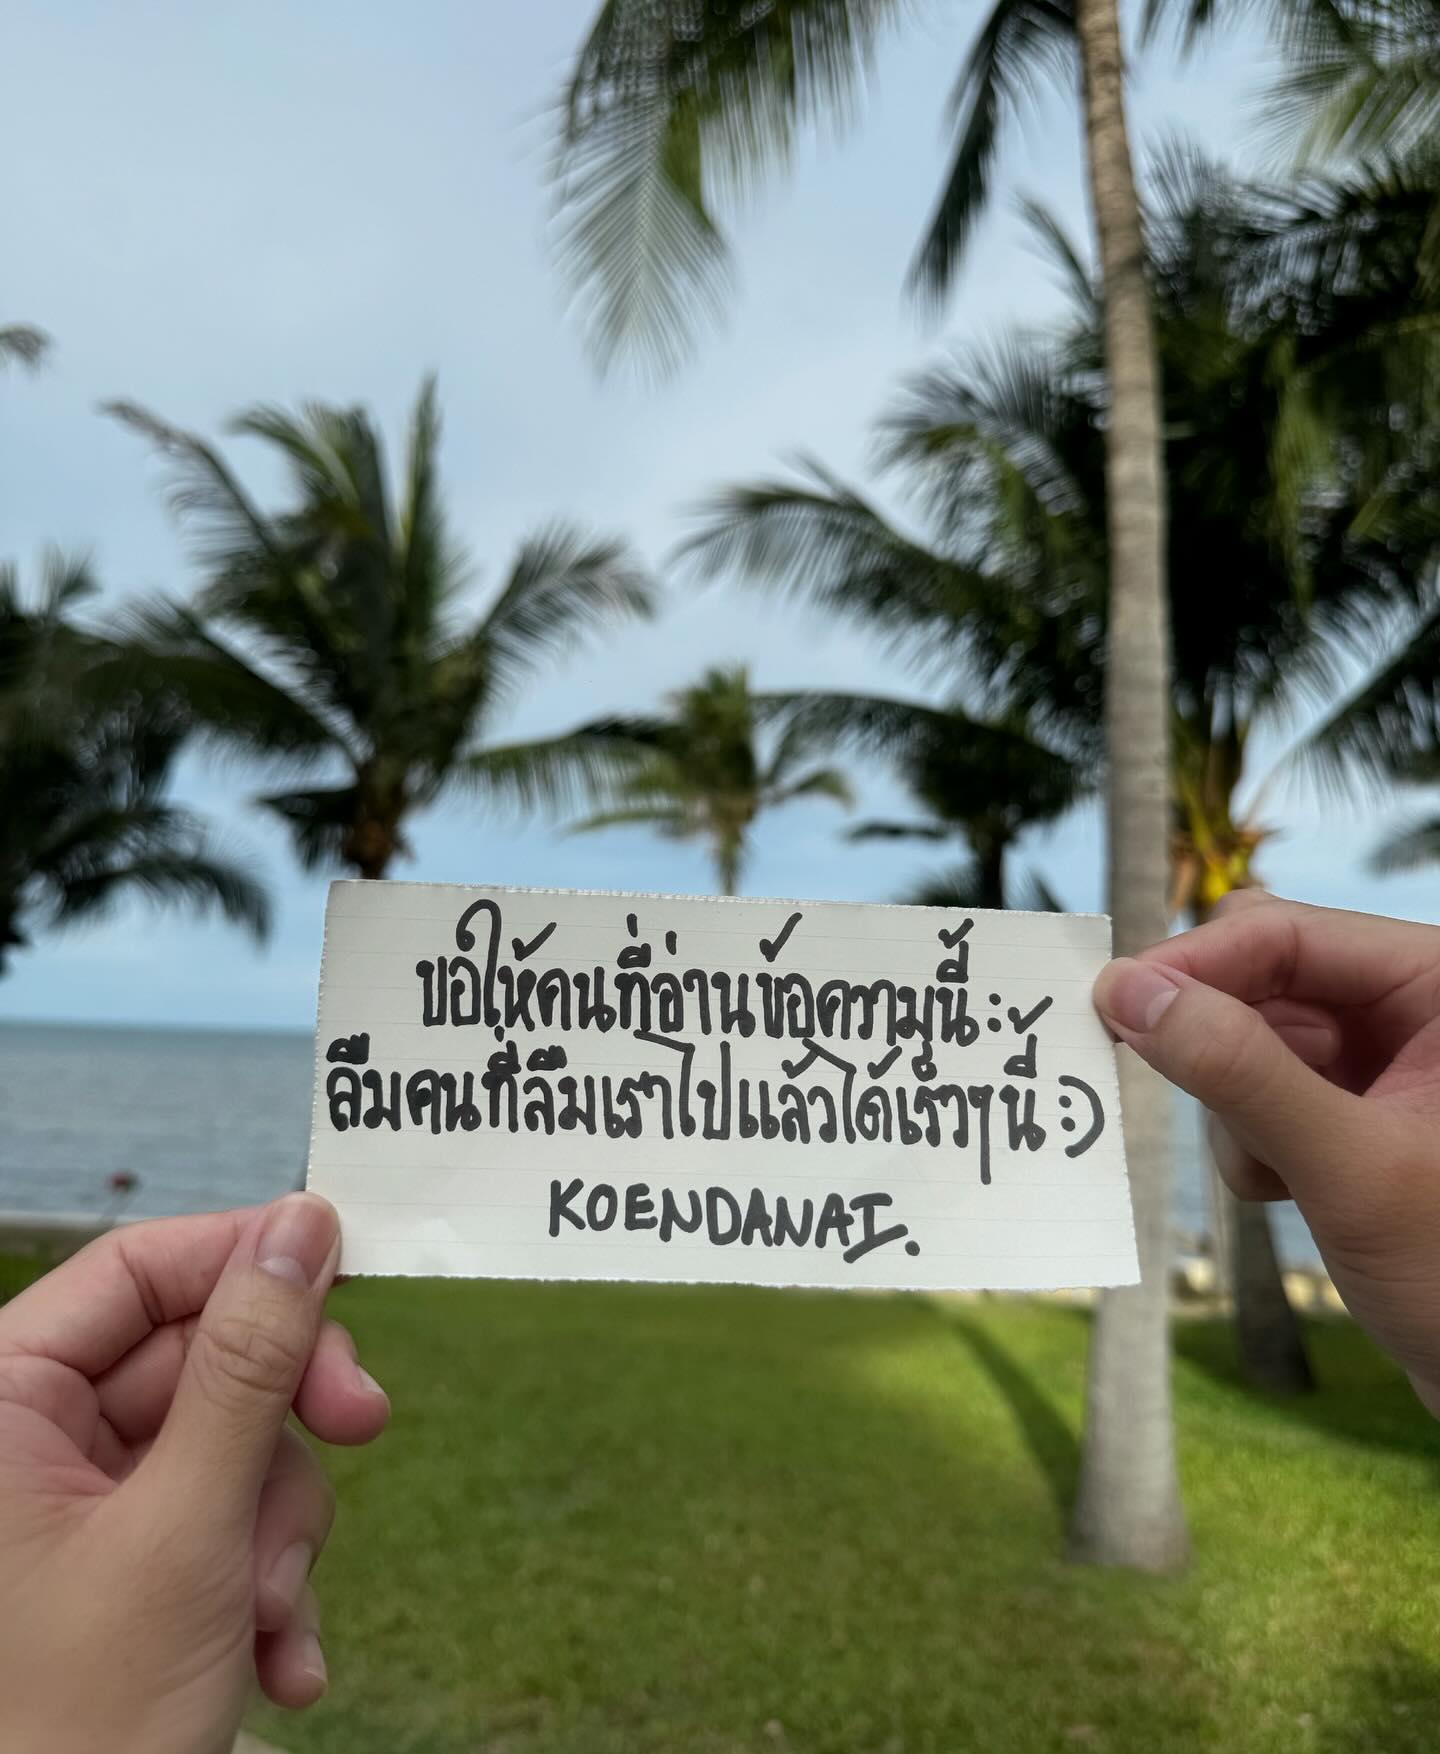 ขอให้คนที่อ่านข้อความนี้ :
ลืมคนที่ลืมเราไปแล้วได้เร็วๆนี้ :)
KOENDANAI.